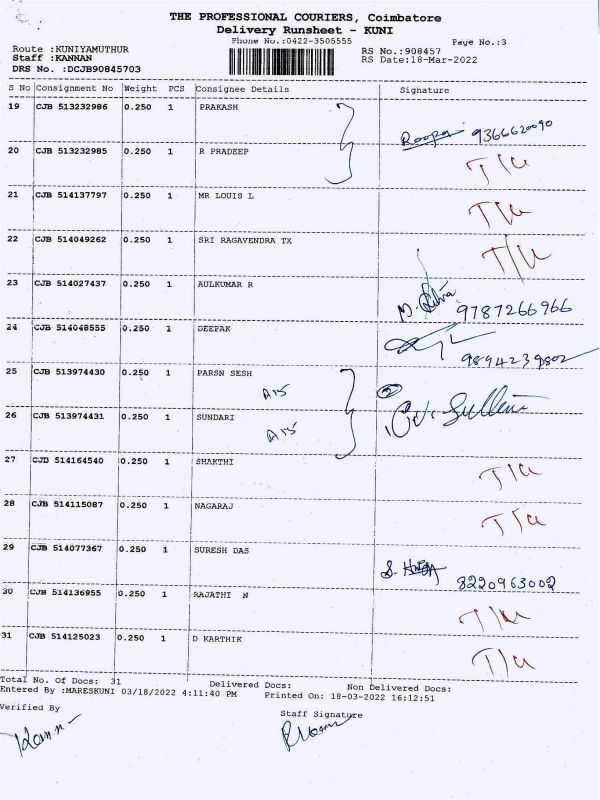 THE PROFESSIONAL COURIERS, Coimbatore
Delivery Runsheet - KUNI
Phone No.:0422-3505555
Page No.:3
Route :KUNIYAMUTHUR
Staff :KANNAN
DRS No. :DCJB90845703
RS No.:908457
RS Date:18-Mar-2022
S No Consignment No Weight PCS Consignee Details Signature
19 CJB 513232986 0.250 1 PRAKASH
Roopa 9366620090
20 CJB 513232985 0.250 1 R PRADEEP T/U
21 CJB 514137797 0.250 1 MR LOUIS L T/U
22 CJB 514049262 0.250 1 SRI RAGAVENDRA TX T/U
23 CJB 514027437 0.250 1 AULKUMAR R
9787266966
24 CJB 514048555 0.250 1 DEEPAK
9894239802
25 CJB 513974430 0.250 1 PARSN SESH
A15
26 CJB 513974431 0.250 1 SUNDARI
A15
27 CJB 514164540 0.250 1 SHAKTHI T/U
28 CJB 514115087 0.250 1 NAGARAJ T/U
29 CJB 514077367 0.250 1 SURESH DAS
8220963002
30 CJB 514136955 0.250 1 RAJATHI N T/U
31 CJB 514125023 0.250 1 D KARTHIK T/U
Total No. Of Docs: 31 Delivered Docs: Non Delivered Docs:
Entered By :MARESKUNI 03/18/2022 4:11:40 PM Printed On: 18-03-2022 16:12:51
Verified By
Staff Signature